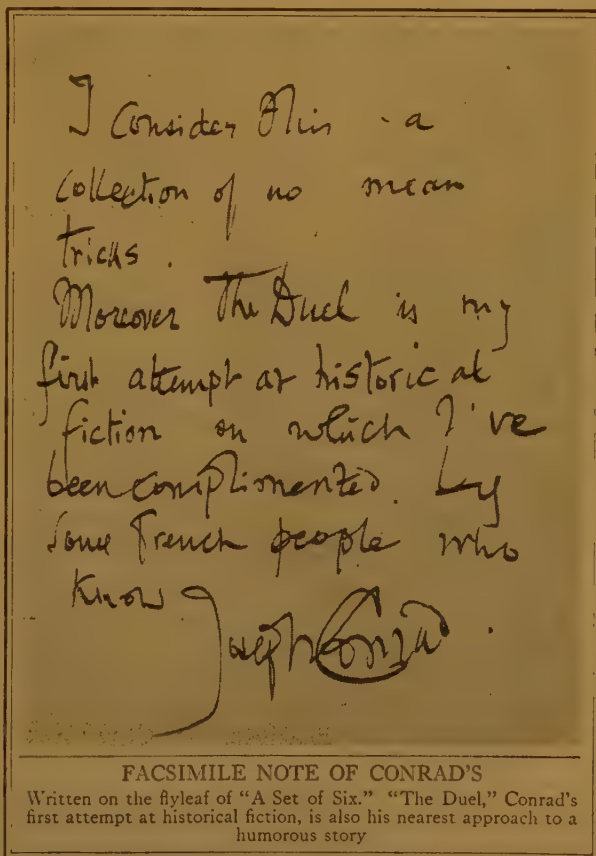 I Consider this - a
collection of no mean
tricks.
Moreover The Duel is my
first attempt at historical
fiction on which I've
been complimented. by
some French people who
know
Joseph Conrad.
FACSIMILE NOTE OF CONRAD'S
Written on the flyleaf of "A Set of Six." "The Duel," Conrad's
first attempt at historical fiction, is also his nearest approach to a
humorous story